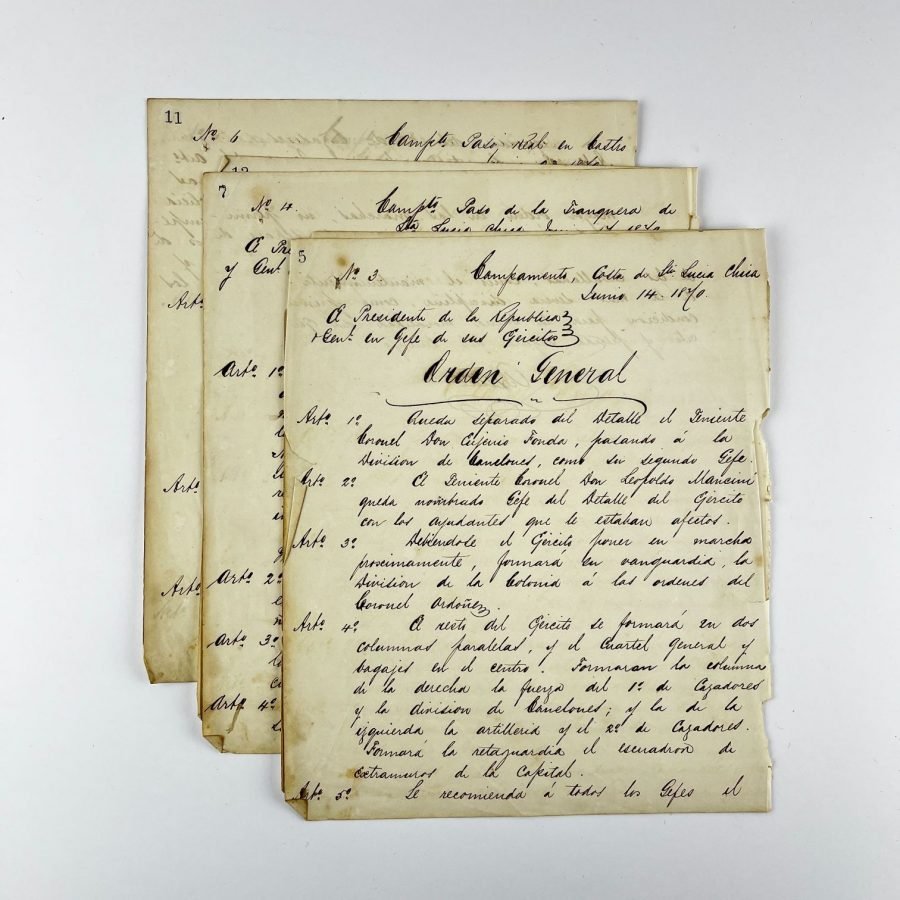 11
Nº 6
Campto. Paso Real en Castro
7
Nº 4.
Campto Paso de la Tranquera de
Sta Lucia Chica Junio 14 1870
El Pre
y Genl.
Arto.
Arto. 1º
Arto.
Arto. 2º
Arto.
Arto. 3º
Arto. 4º
5
Nº 3.
Campamento, Costa de Sta Lucia Chica
Junio 14. 1870.
El Presidente de la Republica
y Genl. en Gefe de sus Ejercitos
Orden General
Arto. 1º Queda separado del Detalle el Teniente
Coronel Don Eujenio Fonda, pasando á la
Division de Canelones, como su segundo Gefe.
Arto. 2º El Teniente Coronel Don Leopoldo Mancini
queda nombrado Gefe del Detalle del Ejercito
con los ayudantes que le estaban afectos.
Arto. 3º Debiendose el Ejercito poner en marcha
proximamente, formará en vanguardia, la
Division de la Colonia á las ordenes del
Coronel Ordoñez.
Arto. 4º El resto del Ejercito se formará en dos
columnas paralelas, y el Cuartel General y
bagajes en el centro. Formaran la columna
de la derecha la fuerza del 1º de Cazadores
y la division de Canelones; y la de la
izquierda la artilleria y el 2º de Cazadores.
Formará la retaguardia el escuadron de
extramuros de la Capital.
Arto. 5º Se recomienda á todos los Gefes el